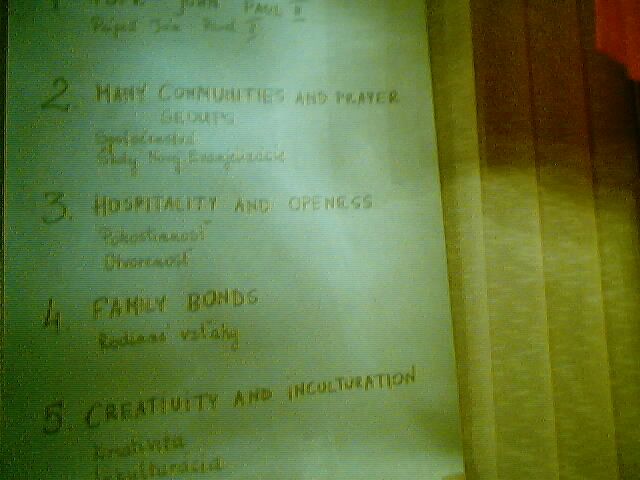 1 POPE JOHN PAUL II
Pápež Ján Pavol II
2 MANY COMMUNITIES AND PRAYER
GROUPS
Spoločenstvá
Školy Novej Evanjelizácie
3. HOSPITALITY AND OPENESS
Pohostinnosť
Otvorenosť
4 FAMILY BONDS
Rodinné vzťahy
5 CREATIVITY AND INCULTURATION
Kreativita
Inkulturácia